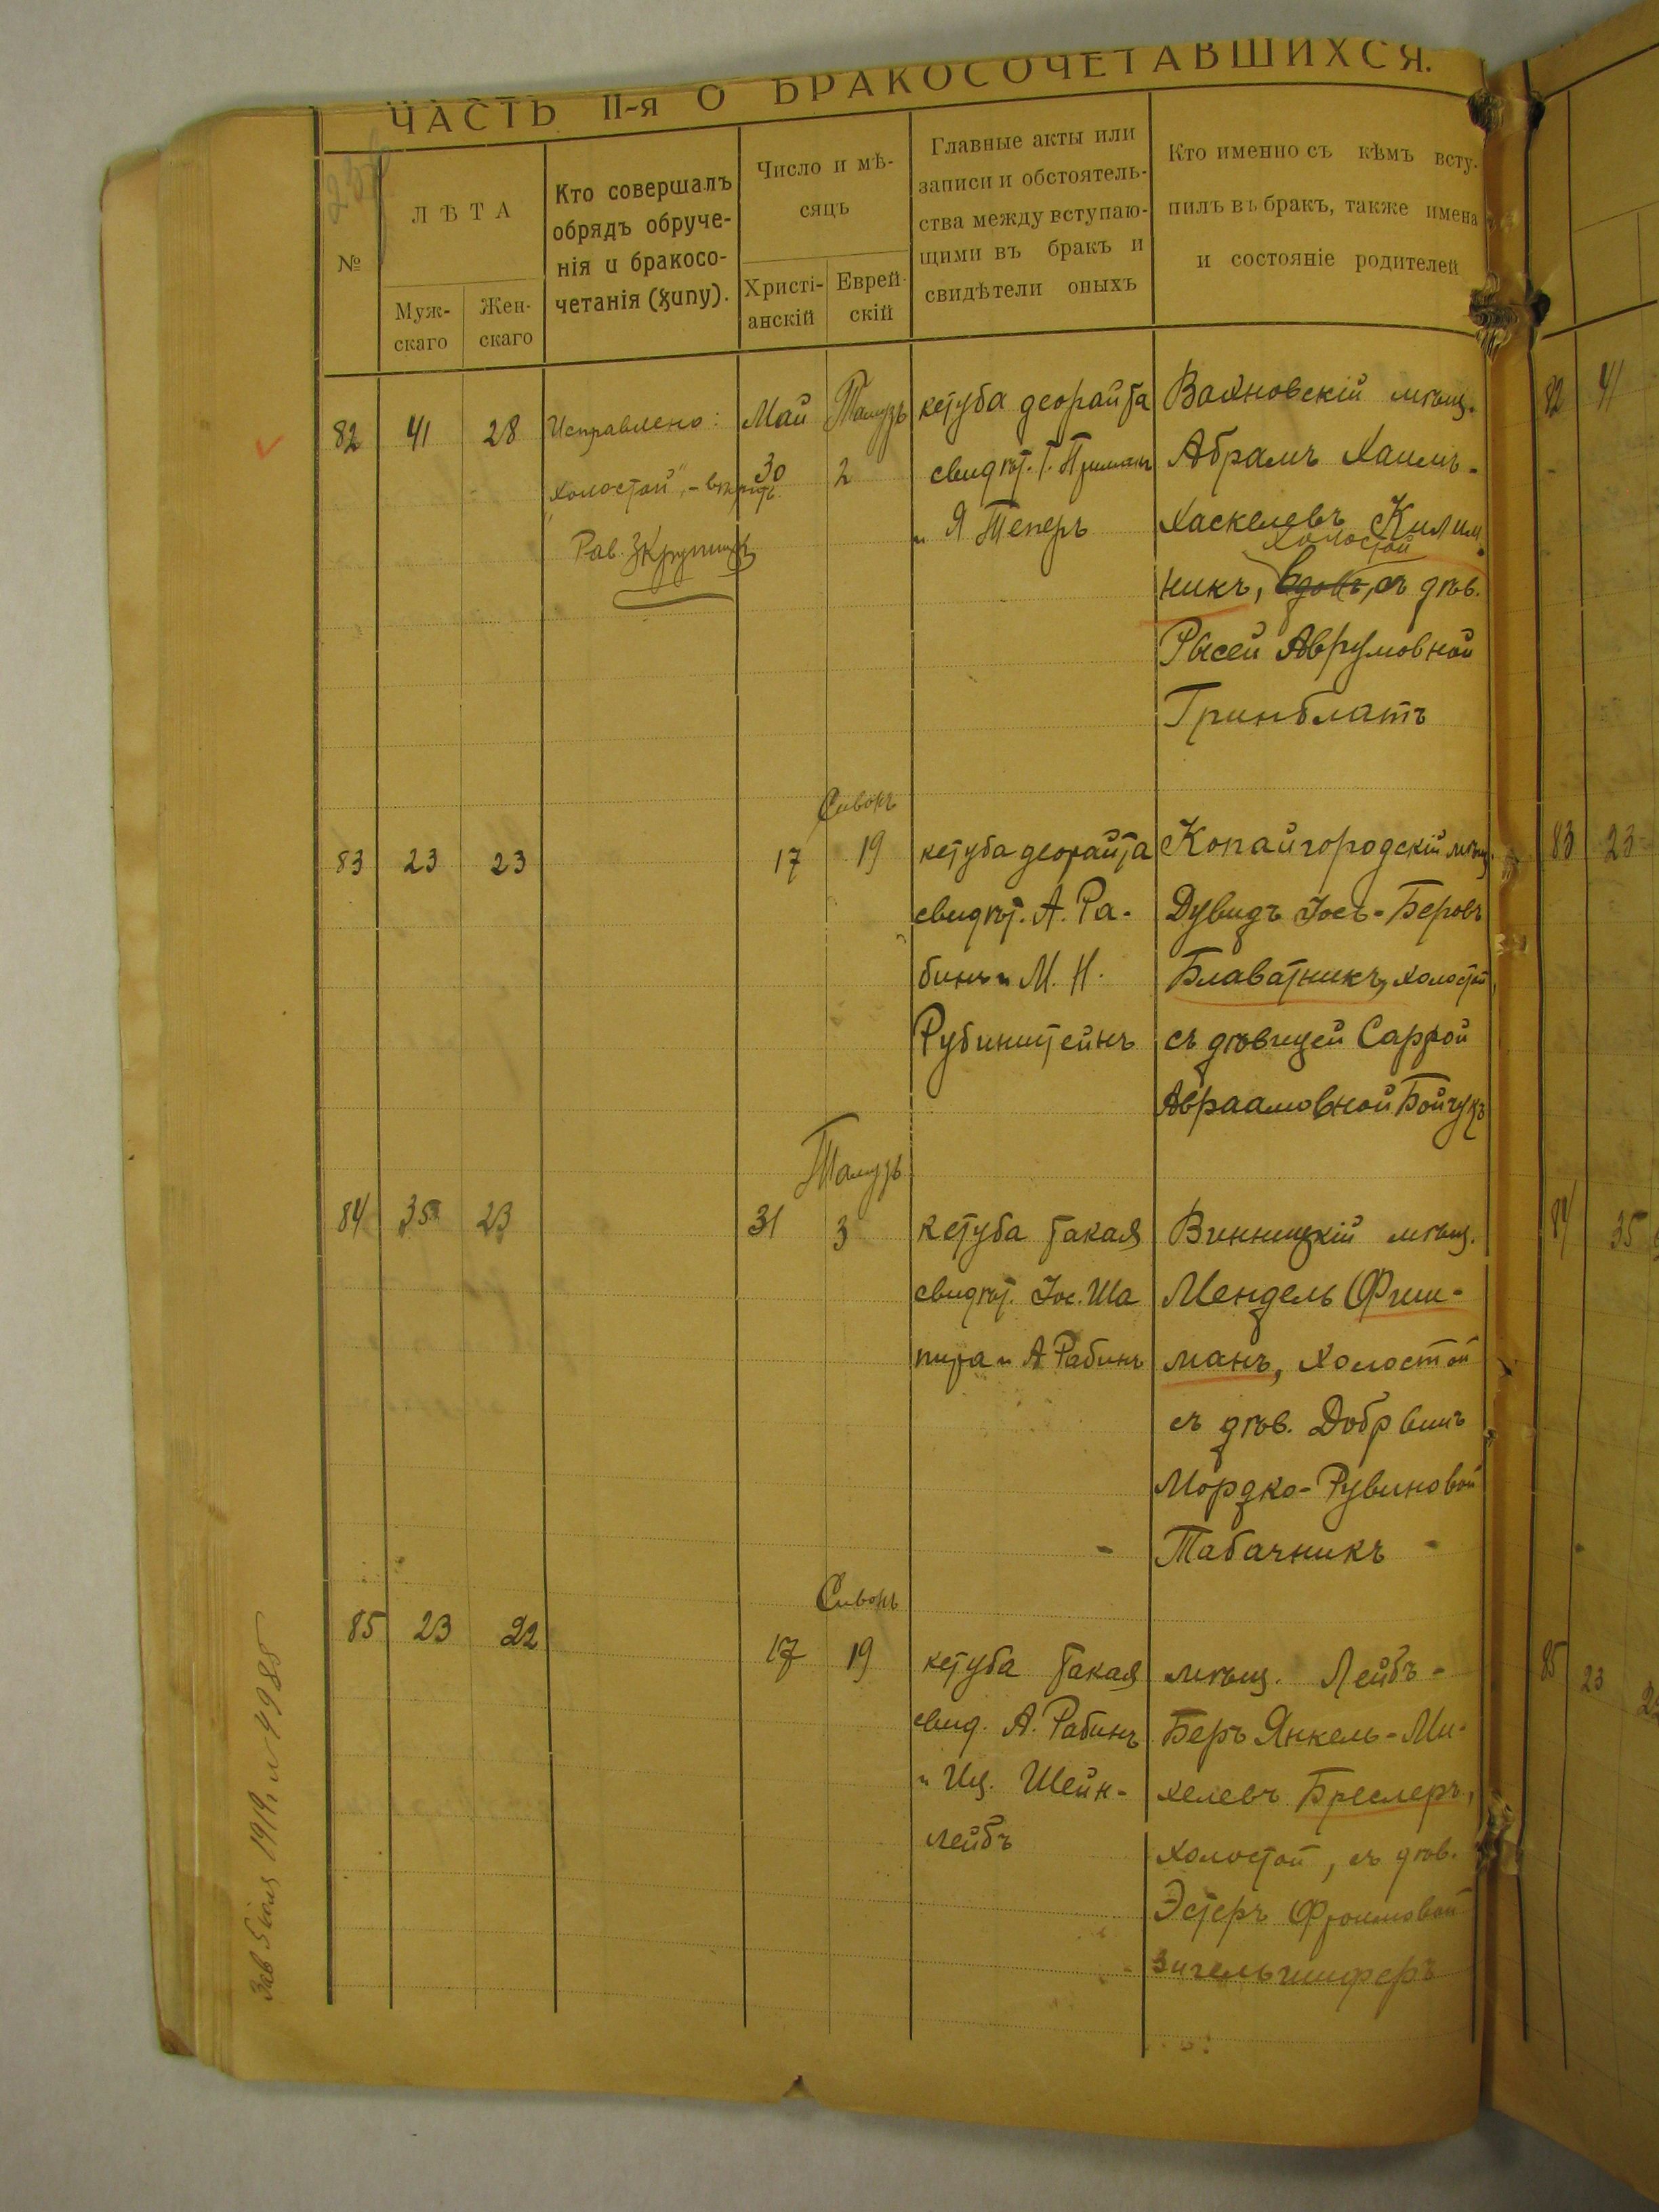 ЧАСТЬ II-я О БРАКОСОЧЕТАВШИХСЯ.
№
ЛѢТА
Муж-
скаго
Жен-
скаго
Кто совершалъ
обрядъ обруче-
нія и бракосо-
четанія (хупу).
Число и мѣ-
сяцъ
Христі-
анскій
Еврей-
скій
Главные акты или
записи и обстоятель-
ства между вступаю-
щими въ бракъ и
свидѣтели оныхъ
Кто именно съ кѣмъ всту-
пилъ въ бракъ, также имена
и состояніе родителей
82
41
28
Исправлено:
"холостой", - вѣрить.
Рав. З Крупникъ
Май
30
Тамузъ
2
кетуба деорайта
свидѣт. Г.
и Я Теперъ
Вахновскій мѣщ.
Абрамъ Хаимъ-
Хаскелевъ Килим
холостой
никъ, вдовъ, съ дѣв.
Рысей Аврумовной
Гринблатъ
83
23
23
17
Сивонъ
19
кетуба деорайта
свидѣт. А. Ра-
бинъ и М. Н.
Рубинштейнъ
Копайгородскій мѣщ.
Дувидъ Іосъ-Беровъ
Блаватникъ, холостой
съ дѣвицей Саррой
Авраамовной Бойчукъ
84
35
23
31
Тамузъ
3
кетуба такая
свидѣт. Іос. Ша
пира и А Рабинъ
Винницкій мѣщ.
Мендель Фиш-
манъ, холостой
съ дѣв. Добр
Мордко-Рувиновой
Табачникъ
85
23
22
17
Сивонъ
19
кетуба такая
свид. А. Рабинъ
и Иц. Шейн-
лейбъ
мѣщ. Лейбъ-
Беръ Янкель-Ми-
хелевъ Бреслеръ,
холостой, съ дѣв.
Эстеръ Фроимовой
Зигельшиферъ
5 1919 4985
82
41
83
23
84
35
85
23